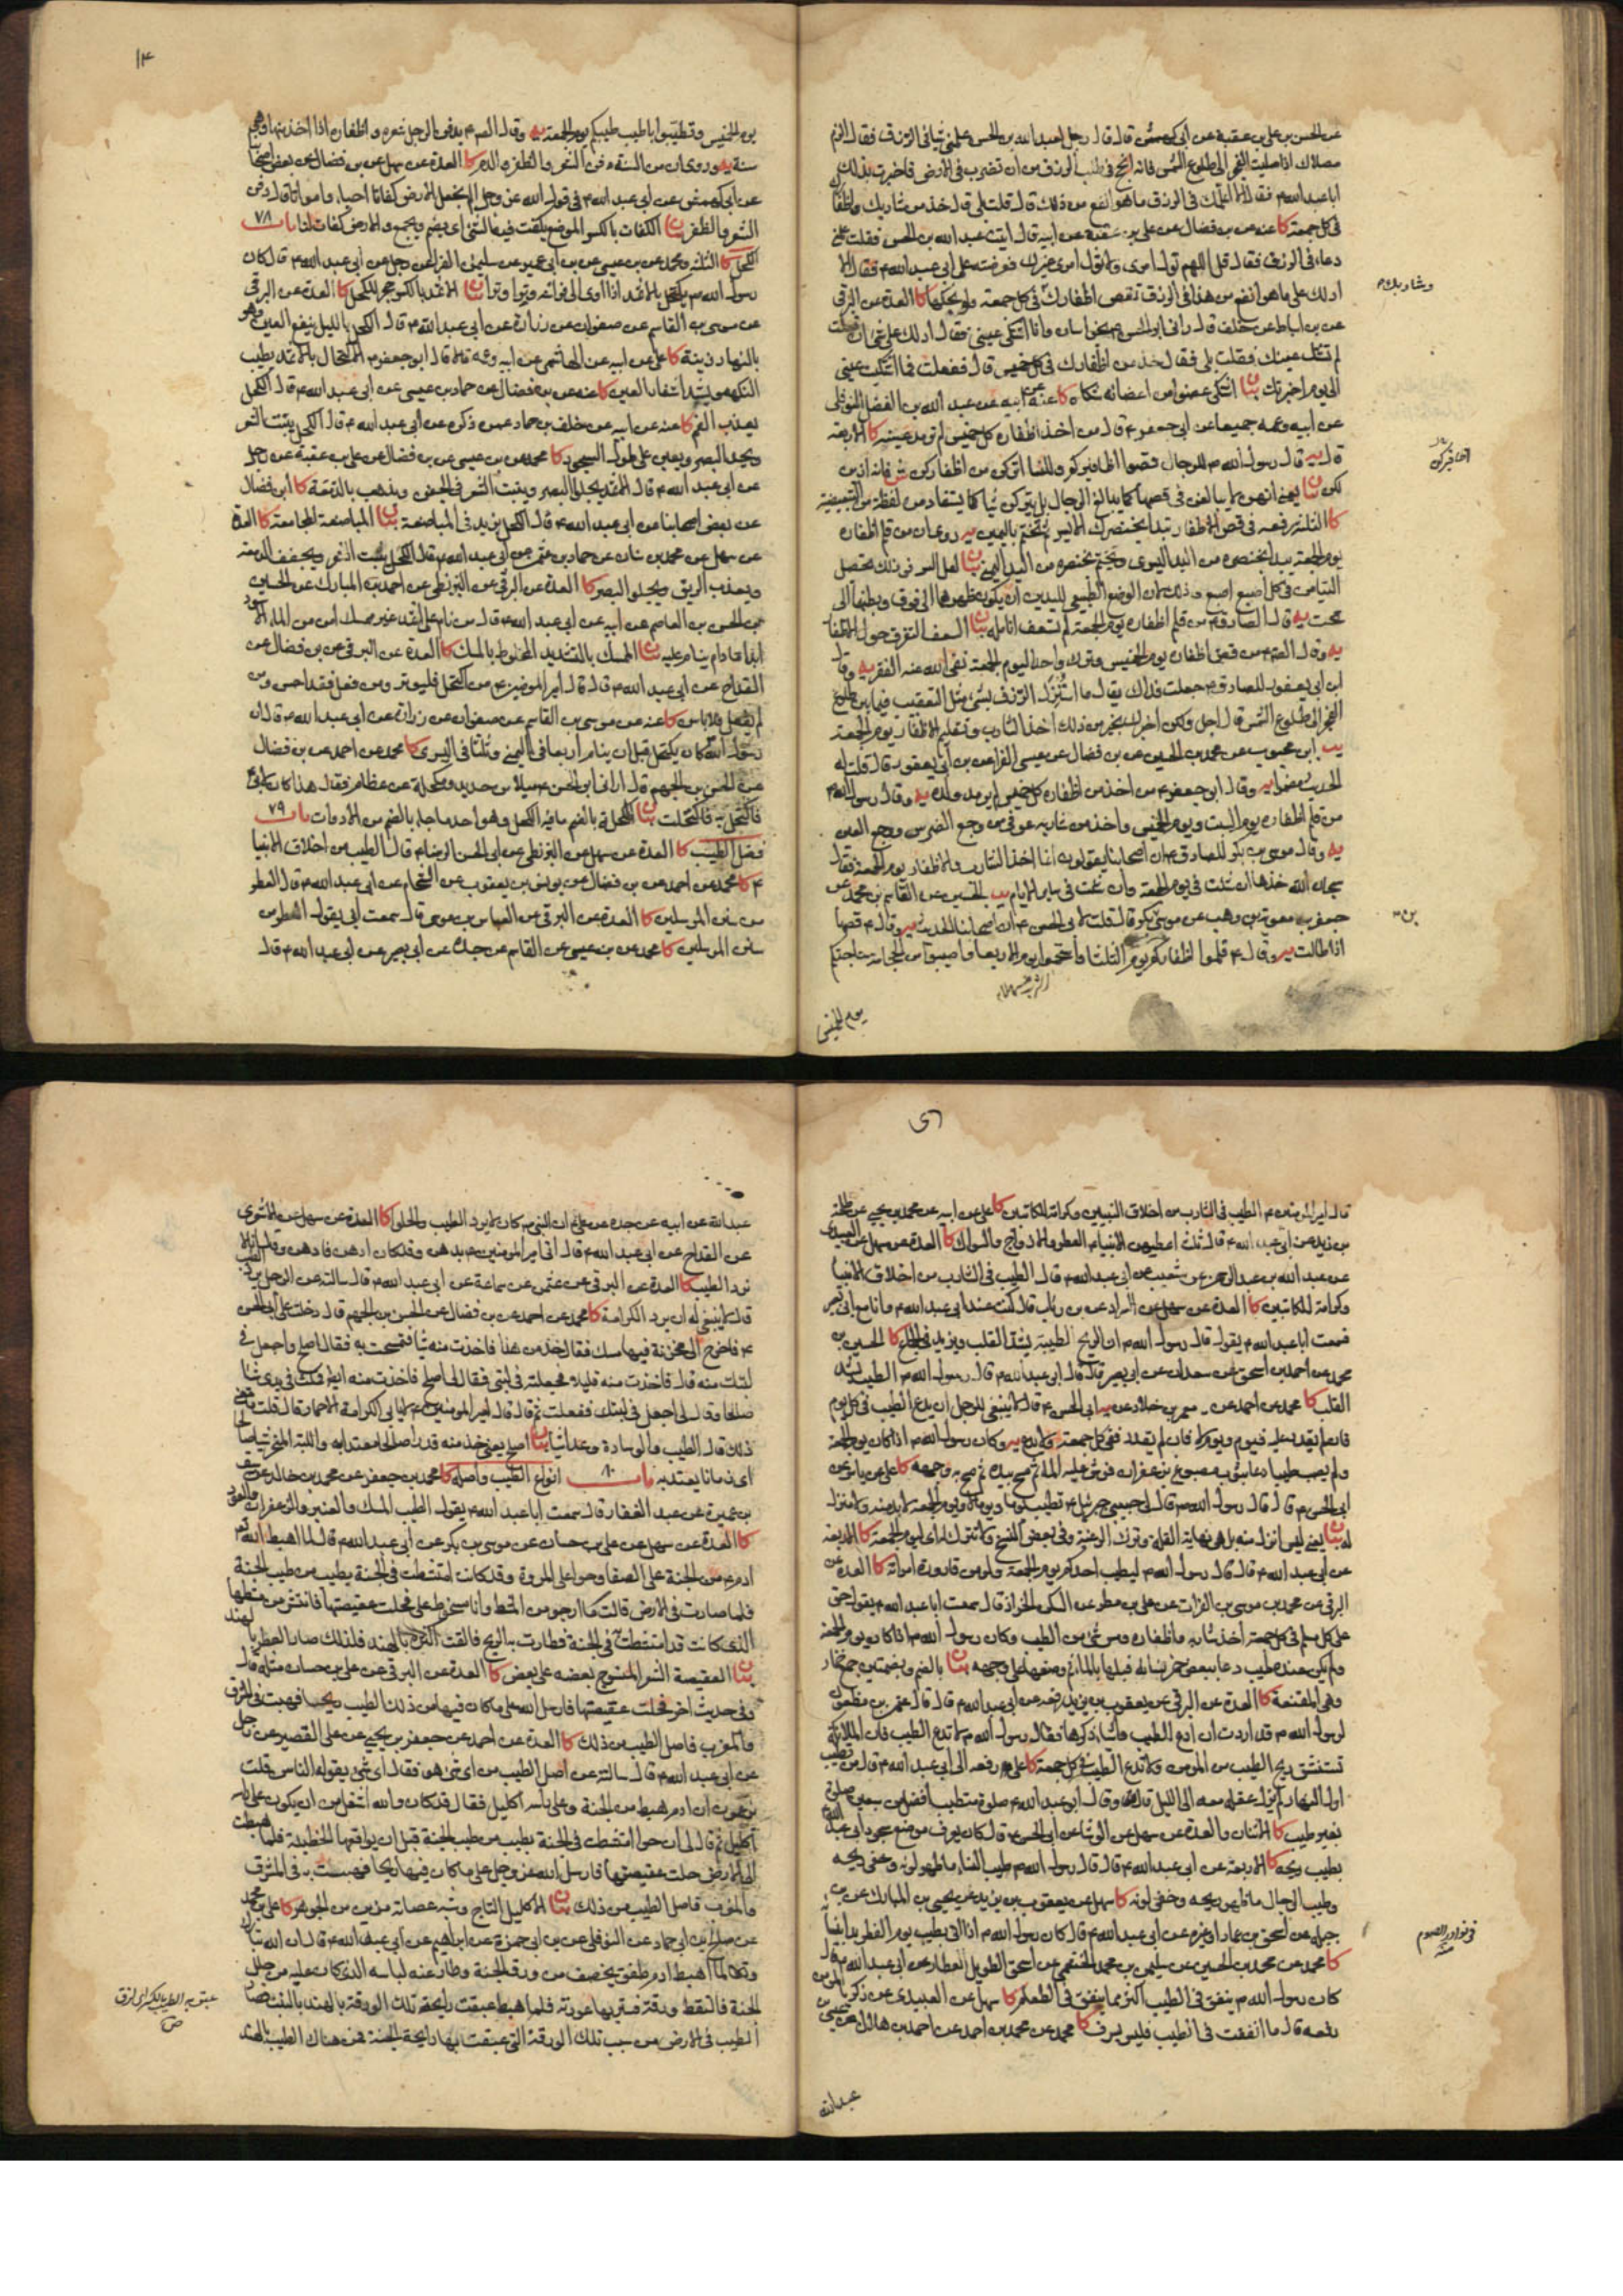 عن الحسن بن علي بن عقبة عن أبي كهمش قال قال رجل لعبد الله بن الحسن علمني شيئا في الرزق فقال الزم
مصلاك اذا صليت الفجر الى طلوع الشمس فانه انجح في طلب الرزق من ان تضرب في الارض فاخبرت بذلك
ابا عبد الله ع فقال الا اعلمك في الرزق ما هو انفع من ذلك قال قلت بلى قال خذ من شاربك واظفارك
في كل جمعة كا عنه عن بن فضال عن علي بن عقبة عن أبيه قال اتيت عبد الله بن الحسن فقلت علمني
دعاء في الرزق فقال قل اللهم تول امري ولا تول امري غيرك فعرضته على أبي عبد الله ع فقال الا
ادلك على ما هو انفع من هذا في الرزق تقص اظفارك في كل جمعة ولو بحكها كا العدة عن البرقي
وشاربك
عن بن اسباط عن خلف قال رآني ابو الحسن ع بخراسان وانا اشتكي عيني فقال ادلك على شئ ان فعلته
لم تشتك عينك فقلت بلى فقال خذ من اظفارك في كل خميس قال ففعلت فما اشتكيت عيني
الى يوم اخبرتك بيان اشتكى عضوا من اعضائه شكاه كا عنه عن أبيه عن عبد الله بن الفضل النوفلي
عن أبيه وعمه جميعا عن أبي جعفر ع قال من اخذ اظفاره كل خميس لم ترمد عينيه كا الاربعة
قال يه قال رسول الله ص للرجال قصوا اظافيركم وللنساء اتركن من اظفاركن فانه ازين
اظافيركن
لكن بيان يعني انهن لا يبالغن في قصها كما يبالغ الرجال بل يتركن شيئا كما يستفاد من لفظة من التبعيضية
كا الثلثة رفعه في قص الاظفار تبدأ بخنصرك الايسر ثم تختم باليمين يه روي ان من قلم اظفاره
يوم الجمعة يبدأ بخنصره من اليد اليسرى ويختم بخنصره من اليد اليمنى بيان لعل السر في ذلك تحصيل
التيامن في كل اصبع اصبع وذلك لان الوضع الطبيعي لليدين ان يكون ظهرهما الى فوق وبطنهما الى
تحت يه قال الصادق ع من قلم اظفاره يوم الجمعة لم تسعف انامله بيان السعف التفرق حول الاظفار
يه وقال ع من قص اظفاره يوم الخميس وترك واحدا ليوم الجمعة نفى الله عنه الفقر يه وقال
ابن أبي يعفور للصادق ع جعلت فداك يقال ما استنزل الرزق بشئ مثل التعقيب فيما بين طلوع
الفجر الى طلوع الشمس قال اجل ولكن اخبرك بخير من ذلك اخذ الشارب وتقليم الاظفار يوم الجمعة
يب ابن محبوب عن محمد بن الحسين عن بن فضال عن عيسى الفراء عن بن أبي يعفور قال قلت له
الحديث بعضه يه وقال ابو جعفر ع من اخذ من اظفاره كل خميس لم يرمد ولده يه وقال رسول الله ص
من قلم اظفاره يوم السبت ويوم الخميس واخذ من شاربه عوفي من وجع الضرس ووجع العين
يه وقال موسى بن بكر للصادق ع ان اصحابنا يقولون انما اخذ الشارب والاظفار يوم الجمعة فقال
سبحان الله خذها ان شئت في يوم الجمعة وان شئت في ساير الايام يب الحسين عن القاسم بن محمد عن
جعفر بن معوية بن وهب عن موسى بكر قال قلت لابي الحسن ع ان اصحابنا الحديث يه وقال ع قصها
اذا طالت يه وقال ع قلموا اظفاركم يوم الثلثا واستحموا يوم الاربعا واصيبوا من الحجامة حاجتكم
يوم الخميس
١٤
يوم الخميس وتطيبوا باطيب طيبكم يوم الجمعة يه وقال الصادق ع يدفن الرجل شعره واظفاره اذا اخذ منها وهي
سنة يه وروي ان من السنة دفن الشعر والظفر والدم كا العدة عن سهل عن بن فضال عن بعض اصحابنا
عن أبي كهمش عن ابي عبد الله ع في قول الله عز وجل الم نجعل الارض كفاتا احياء وامواتا قال دفن
الشعر والظفر بيان الكفات بالكسر الموضع يكفت فيه الشئ اي يضم ويجمع والارض كفات لنا باب ٧٨
الكحل كا الثلثة ومحمد عن بن عيسى عن بن أبي عمير عن سليمن الفراء عن رجل عن أبي عبد الله ع قال كان
رسول الله ص يكتحل بالاثمد اذا اوى الى فراشه وترا وترا بيان الاثمد بالكسر حجر للكحل كا العدة عن البرقي
عن موسى بن القاسم عن صفوان عن زرارة عن ابي عبد الله ع قال الكحل بالليل ينفع العين وهو
بالنهار زينة كا علي عن ابيه عن الهاشمي عن ابيه وعمه قالا قال ابو جعفر ع الاكتحال بالاثمد يطيب
النكهة ويشد اشفار العين كا عنه عن بن فضال عن حماد بن عيسى عن ابي عبد الله ع قال الكحل
يعذب الفم كا عنه عن ابيه عن خلف بن حماد عمن ذكره عن ابي عبد الله ع قال الكحل ينبت الشعر
ويحد البصر ويعين على طول السجود كا محمد عن بن عيسى عن بن فضال عن علي بن عقبة عن رجل
عن أبي عبد الله ع قال الاثمد يجلو البصر وينبت الشعر في الجفن ويذهب بالدمعة كا ابن فضال
عن بعض اصحابنا عن ابي عبد الله ع قال الكحل يزيد في المباضعة بيان المباضعة المجامعة كا العدة
عن سهل عن محمد بن سنان عن حماد بن عثمن عن ابي عبد الله ع قال الكحل ينبت الشعر ويجفف الدمعة
ويعذب الريق ويجلو البصر كا العدة عن البرقي عن البزنطي عن احمد بن المبارك عن الحسين
بن الحسن بن العاصم عن ابيه عن ابي عبد الله ع قال من نام على اثمد غير ممسك امن من الماء الاسود
ابدا ما دام ينام عليه بيان الممسك بالتشديد المخلوط بالمسك كا العدة عن البرقي عن بن فضال عن
القداح عن أبي عبد الله ع قال قال امير المؤمنين ع من اكتحل فليوتر ومن فعل فقد احسن ومن
لم يفعل فلا باس كا عنه عن موسى بن القاسم عن صفوان عن زرارة عن ابي عبد الله ع قال ان
رسول الله كان يكتحل قبل ان ينام اربعا في اليمنى وثلثا في اليسرى كا محمد عن احمد عن بن فضال
عن الحسن بن الجهم قال اراني ابو الحسن ع ميلا من حديد ومكحلة من عظام فقال هذا كان لابي
فاكتحل به فاكتحلت بيان المكحلة بالضم ما فيه الكحل وهو احد ما جاء بالضم من الادوات باب ٧٩
فضل الطيب كا العدة عن سهل عن البزنطي عن ابي الحسن الرضا ع قال الطيب من اخلاق الانبيا
ع كا محمد عن احمد عن بن فضال عن يونس بن يعقوب عن الشحام عن ابي عبد الله ع قال العطر
من سنن المرسلين كا العدة عن البرقي عن العباس بن موسى قال سمعت أبي يقول العطر من
سنن المرسلين كا محمد عن بن عيسى عن القاسم عن جده عن ابي بصير عن ابي عبد الله ع قال
قال امير المؤمنين ع الطيب في الشارب من اخلاق النبيين وكرامة للكاتبين كا علي عن ابيه عن محمد بن يحيى عن طلحة
بن زيد عن ابي عبد الله ع قال ثلث اعطيهن الانبياء العطر والازواج والسواك كا العدة عن سهل عن العبيدي
عن عبد الله بن عبد الرحمن عن شعيب عن ابي عبد الله ع قال الطيب في الشارب من اخلاق الانبيا
وكرامة للكاتبين كا العدة عن سهل عن السراد عن بن رئاب قال كنت عند ابي عبد الله ع وانا مع ابي بصير
فسمعت ابا عبد الله ع يقول قال رسول الله ص ان الريح الطيبة يشد القلب ويزيد في الجماع كا الحسين بن
محمد عن احمد بن اسحق عن سعدان عن ابي بصير قال قال ابو عبد الله ع قال رسول الله ص الطيب يشد
القلب كا محمد عن احمد عن معمر بن خلاد عن ابي الحسن ع قال لا ينبغي للرجل ان يدع الطيب في كل يوم
فان لم يقدر عليه فيوم ويوم لا فان لم يقدر ففي كل جمعة ولا يدع يه وكان رسول الله ص اذا كان يوم الجمعة
ولم يصب طيبا دعا بثوب مصبوغ بزعفران فرش عليه الماء ثم مسح بيده ثم مسح به وجهه كا علي عن ياسر عن
ابي الحسن ع قال قال رسول الله ص قال لي حبيبي جبرئيل ع تطيب يوما ويوما لا ويوم الجمعة لا بد منه ولا منزل
عن ابي عبد الله ع قال قال رسول الله ص ليطيب احدكم يوم الجمعة ولو من قارورة امرأته كا العدة عن
البرقي عن محمد بن موسى بن الفرات عن علي بن مطر عن السكن الخزاز قال سمعت ابا عبد الله ع يقول حق
على كل مسلم في كل جمعة اخذ شاربه واظفاره ومس شئ من الطيب وكان رسول الله ص اذا كان يوم الجمعة
ولم يكن عنده طيب دعا ببعض خمر نسائه فبلها بالماء ثم وضعها على وجهه بيان بالضم وبضمتين جمع خمار
وهي المقنعة كا العدة عن البرقي عن يعقوب بن يزيد رفعه عن ابي عبد الله ع قال قال عثمن بن مظعون
لرسول الله ص قد اردت ان ادع الطيب واشياء ذكرها فقال رسول الله ص لا تدع الطيب فان الملائكة
تستنشق ريح الطيب من المؤمن ولا تدع الطيب في كل جمعة كا علي رفعه الى ابي عبد الله ع قال من تطيب
اول النهار لم يزل عقله معه الى الليل وقال ابو عبد الله ع صلوة متطيب افضل من سبعين صلوة
بغير طيب كا الاثنان والعدة عن سهل عن الوشا عن ابي الحسن ع قال كان يعرف موضع سجود ابي عبد الله
بطيب ريحه كا الاربعة عن ابي عبد الله ع قال قال رسول الله ص طيب النساء ما ظهر لونه وخفي ريحه
وطيب الرجال ما ظهر ريحه وخفي لونه كا سهل عن يعقوب بن يزيد عن يحيى بن المبارك عن بن
جبلة عن اسحق بن عمار او غيره عن ابي عبد الله ع قال كان رسول الله ص اذا اتي بطيب يوم الفطر بدأ بنسائه
في نوادر الصوم منه
كا محمد عن محمد بن الحسين عن سليمن بن محمد الخثعمي عن اسحق الطويل العطار عن ابي عبد الله ع قال
كان رسول الله ص ينفق في الطيب اكثر مما ينفق في الطعام كا سهل عن العبيدي عن زكريا المؤمن
رفعه قال ما انفقت في الطيب فليس بسرف كا محمد عن محمد بن احمد عن احمد بن هلال عن عيسى بن
عبد الله
عبد الله عن ابيه عن جده عن علي ع ان النبي ص كان لا يرد الطيب والحلوا كا العدة عن سهل عن الاشعري
عن القداح عن ابي عبد الله ع قال اتي امير المؤمنين ع بدهن وقد كان ادهن فادهن وقال انا لا
نرد الطيب كا العدة عن البرقي عن عثمن عن سماعة عن ابي عبد الله ع قال سالته عن الرجل يرد الطيب
قال لا ينبغي له ان يرد الكرامة كا محمد عن احمد عن بن فضال عن الحسن بن الجهم قال دخلت على ابي الحسن
ع فاخرج الي مخزنة فيها مسك فقال خذ من هذا فاخذت منه شيئا فتمسحت به فقال اصلح واجعل في
لبتك منه قال فاخذت منه قليلا فجعلته في لبتي فقال لي اصلح فاخذت منه ايضا فمكث في يدي شئ
صالح وقال لي اجعل في لبتك ففعلت ثم قال قال امير المؤمنين ع لا يابى الكرامة الا حمار قال قلت ما معنى
ذلك قال الطيب والوسادة وعد اشياء بيان اصلح يعني خذ منه قدرا صالحا معتدا به واللبة المنحر شيئا صالحا
اي زمانا يعتد به باب ٨٠ انواع الطيب واصله كا محمد بن جعفر عن محمد بن خالد عن سيف
بن عميرة عن عبد الغفار قال سمعت ابا عبد الله ع يقول الطيب المسك والعنبر والزعفران والعود
كا العدة عن سهل عن علي بن حسان عن موسى بن بكر عن ابي عبد الله ع قال لما اهبط الله تعالى
ادم ع من الجنة على الصفا وحوا على المروة وقد كانت امتشطت في الجنة بطيب من طيب الجنة
فلما صارت في الارض قالت ما ارجو من المشط وانا مسخوط علي فحلت عقيصتها فانتثر من مشطها
الذي كانت قد امتشطت به في الجنة فطارت به الريح فالقت اكثره بالهند فلذلك صار العطر بالهند
بيان العقيصة الشعر المنسوج بعضه على بعض كا العدة عن البرقي عن علي بن حسان مثله قال
وفي حديث اخر فحلت عقيصتها فارسل الله على ما كان فيها من ذلك الطيب ريحا فهبت في المشرق
والمغرب فاصل الطيب من ذلك كا العدة عن احمد عن جعفر بن يحيى عن علي القصير عن رجل
عن ابي عبد الله ع قال سالته عن اصل الطيب من اي شئ هو فقال اي شئ يقوله الناس قلت
يزعمون ان ادم هبط من الجنة وعلى راسه اكليل فقال قد كان والله اشغل من ان يكون على راسه
اكليل ثم قال لي ان حوا امتشطت في الجنة بطيب من طيب الجنة قبل ان يواقعها الخطيئة فلما هبطت
الى الارض حلت عقيصتها فارسل الله عز وجل على ما كان فيها ريحا فهبت به في المشرق
والمغرب فاصل الطيب من ذلك بيان الاكليل التاج وشبه عصابة مزين من الجوهر كا علي بن محمد
عن صالح بن ابي حماد عن النوفلي عن بن ابي حمزة عن ابراهيم عن ابي عبد الله ع قال ان الله تبارك
وتعالى لما اهبط ادم طفق يخصف من ورق الجنة وطار عنه لباسه الذي كان عليه من حلل
الجنة فالتقط ورقة فستر بها عورته فلما هبط عبقت رايحة تلك الورقة بالهند بالنبت فصار
عبق به الطيب بالكسر اي لزق ص
الطيب في الارض من سبب تلك الورقة التي عبقت بها رايحة الجنة فمن هناك الطيب بالهند